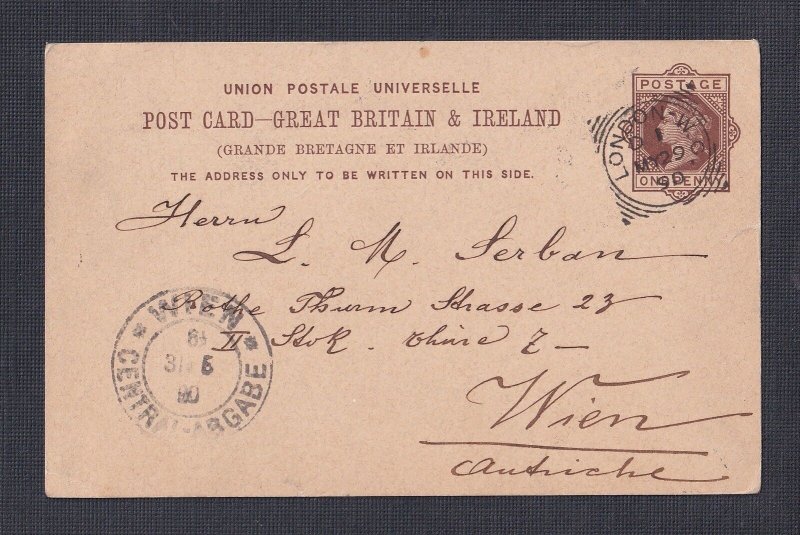 UNION POSTALE UNIVERSELLE
POST CARD—GREAT BRITAIN & IRELAND
(GRANDE BRETAGNE ET IRLANDE)
THE ADDRESS ONLY TO BE WRITTEN ON THIS SIDE.
POSTAGE
ONE PENNY
LONDON-W.C
MY 29
90
Herrn
L. M. Serban
Rothe Thurm Strasse 23
II Stok. thüre 7 —
Wien
Autriche
* WIEN *
31 5
90
CENTRAL-ABGABE